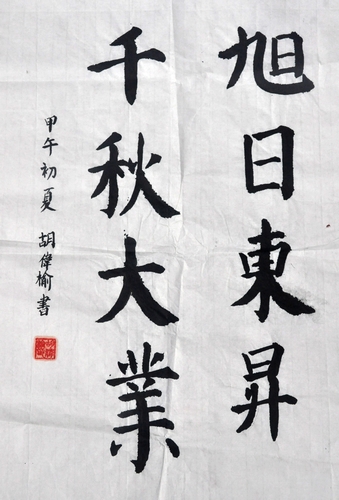 旭日東昇
千秋大業
甲午初夏 胡偉榆書